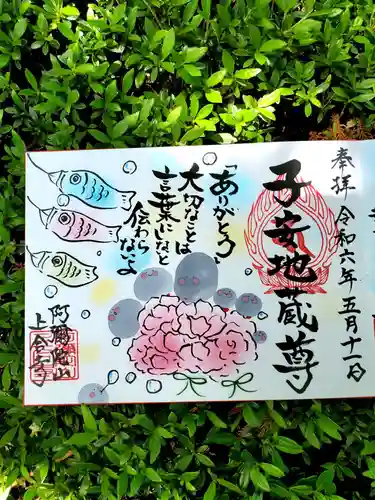 奉拝 令和六年五月十一日
子安地蔵尊
「ありがとう」
大切なことは
言葉になと
伝わらないよ
阿弥陀山
上合寺